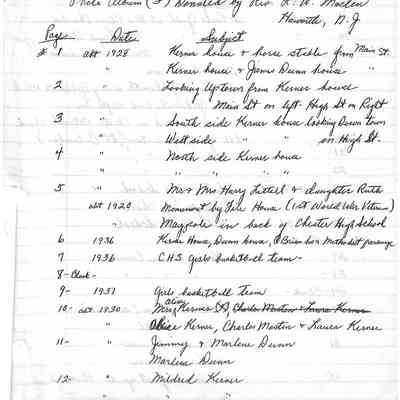 Photo Album (5) Donated by Rev. R. W. Moslen
Haworth, N. J.
Page Date Subject
# 1 abt 1928 Kerner house & horse stable from Main St.
" Kerner house & James Dunn house "
2 Looking Uptown from Kerner house
Main St on left- High St on Right
3 " South side Kerner house looking Down town
" West side " " on High St.
4 " North side Kerner house
" " " " "
5 " Mr & Mrs Harry & daughter Ruth
abt 1928 Monument by Fire House (1st World War Veterans)
" Maypole in back of Chester High School
6 1936 Kerner House, Dunn house, O'Brien house Methodist parsonage
7 1936 C.H.S girls basketball team-
8- Clark-
9- 1937 Girls basketball team
10- abt 1930 Mrs Alice Kerner (X), Charles Moslen & Laura Kerner
" Alice Kerner, Charles Moslen & Laura Kerner
11- " Jimmy & Marlene Dunn
Marlene Dunn
12- " Mildred Kerner
" " "